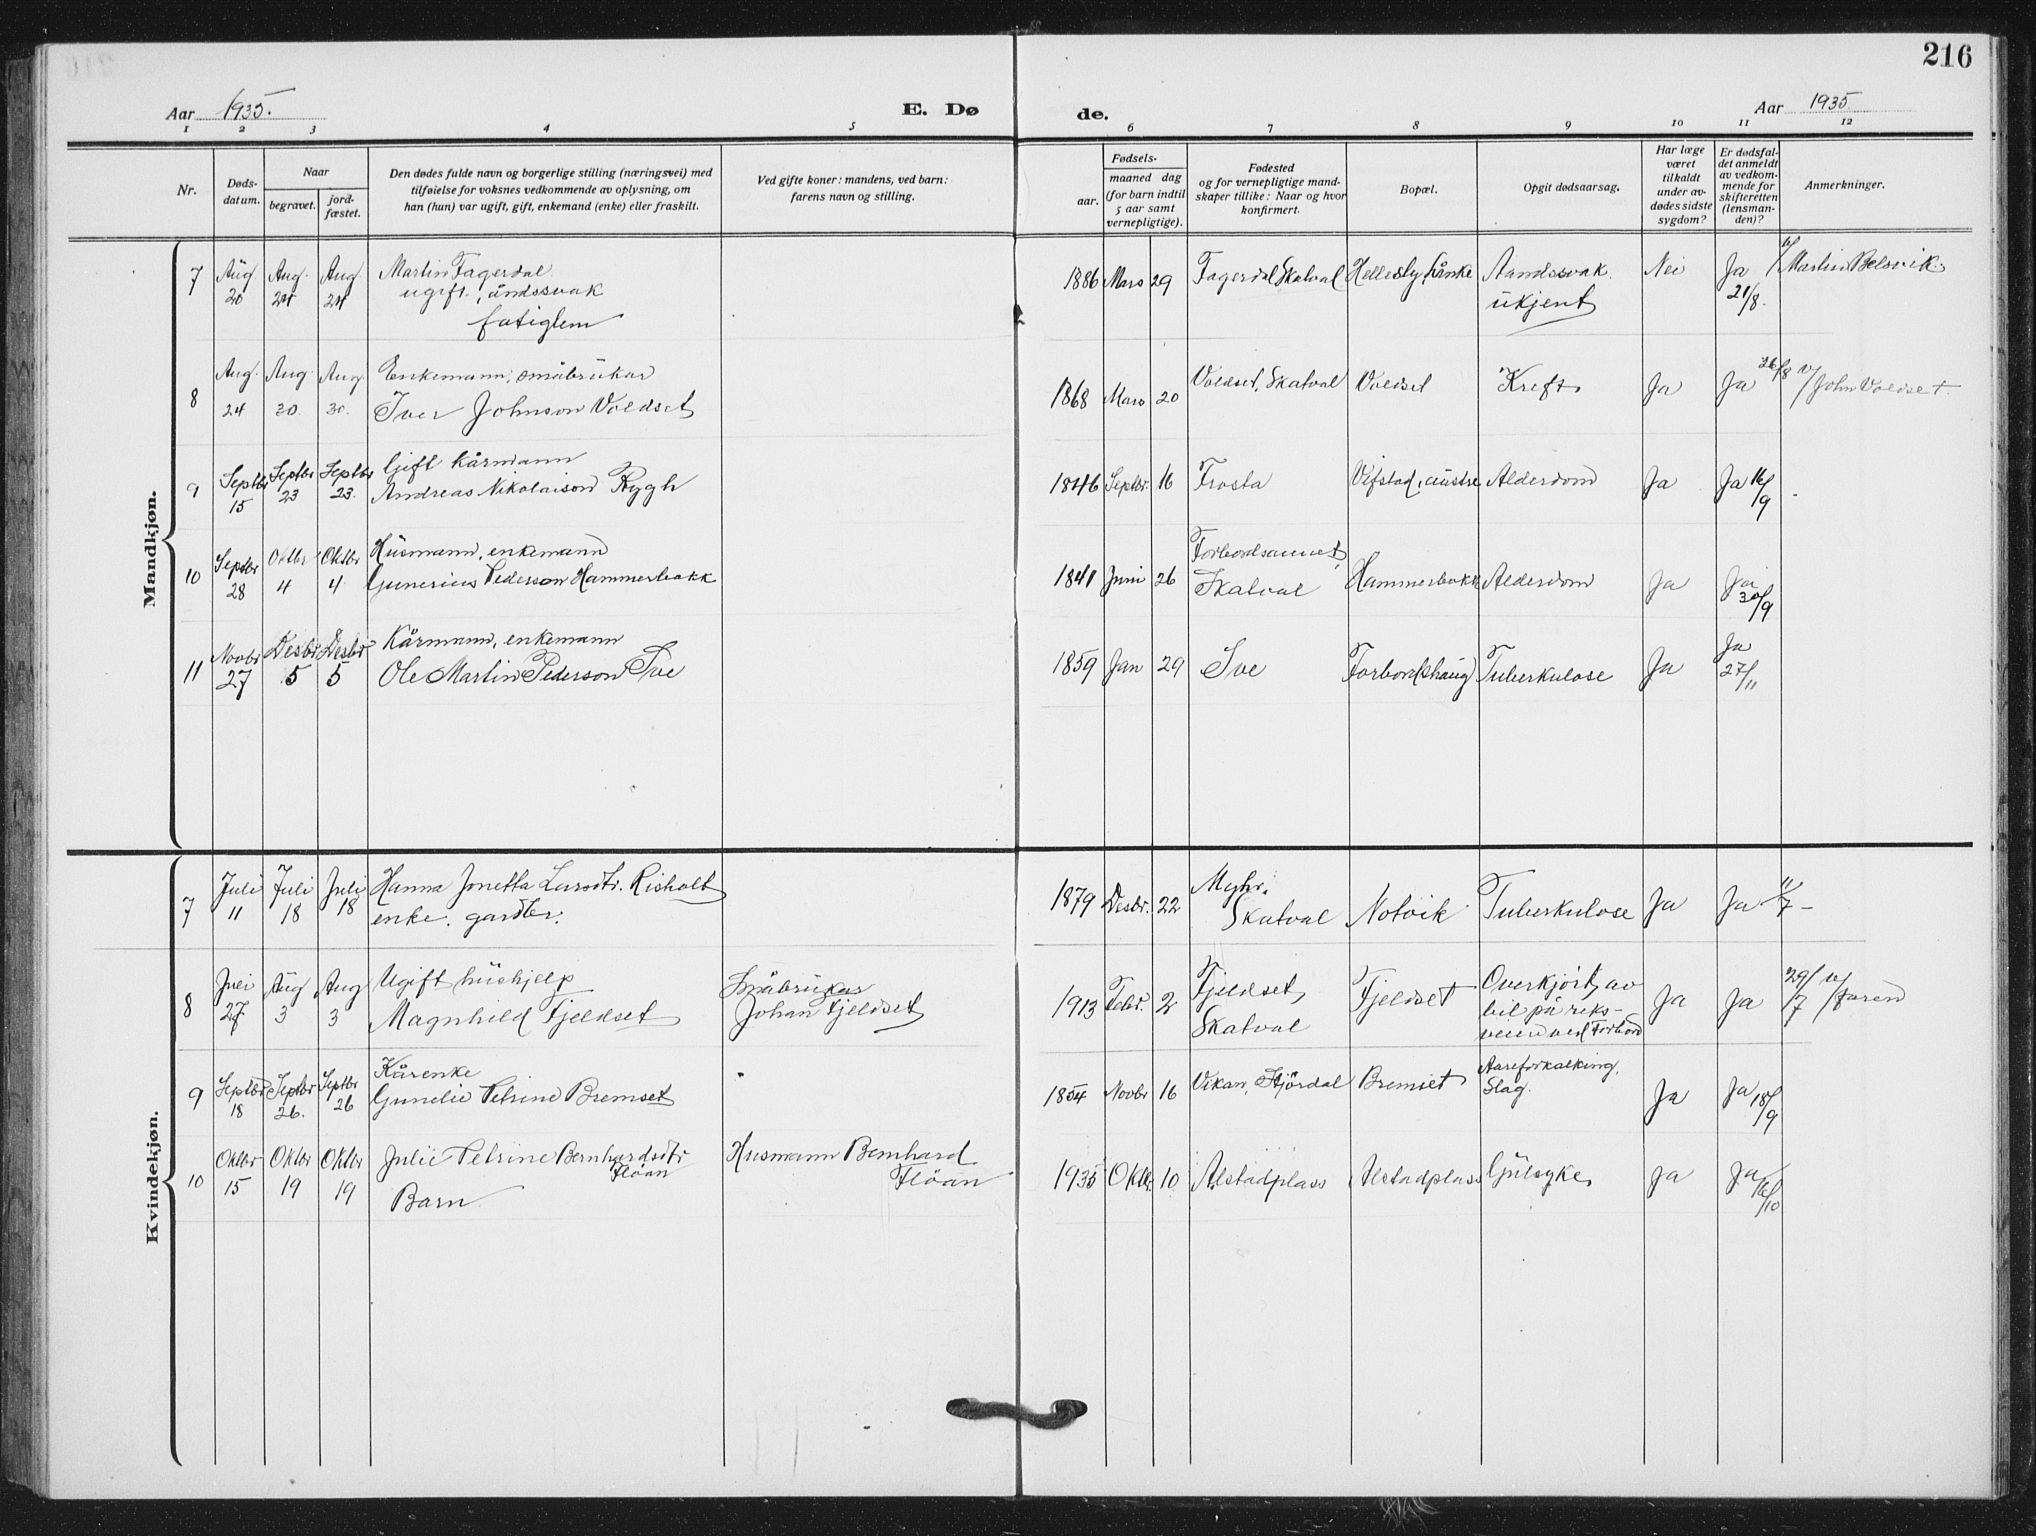 216
Aar 1935.
E. Dø
de.
Aar 1935
1 2 3 4 5 6 7 8 9 10 11 12
Nr.
Døds-
datum.
Naar
begravet.
jord-
fæstet.
Den dødes fulde navn og borgerlige stilling (næringsvei) med
tilføielse for voksnes vedkommende av oplysning, om
han (hun) var ugift, gift, enkemand (enke) eller fraskilt.
Ved gifte koner: mandens, ved barn:
farens navn og stilling.
Fødsels-
aar.
maaned dag
(for barn indtil
5 aar samt
vernepligtige).
Fødested
og for vernepligtige mand-
skaper tillike: Naar og hvor
konfirmert.
Bopæl.
Opgit dødsaarsag.
Har læge
været
tilkaldt
under av-
dødes sidste
sygdom?
Er dødsfal-
det anmeldt
av vedkom-
mende for
skifteretten
(lensman-
den)?
Anmerkninger.
Mandkjøn.
7 Aug 20 Aug. 24 Aug 24
Martin Fagerdal
ugift, åndssvak
fatiglem
1886 Mars 29 Fagerdal Skatval Helleoby, Lånke Aandssvak
ukjent
Nei Ja 21/8. v/ Martin Belsvik.
8 Aug. 24 Aug 30. Aug 30.
Enkemann, småbruker
Iver Johnson Voldset
1868 Mars 20 Voldset, Skatval Voldset Kreft Ja Ja 26/8 v/ John Voldset.
9 Septbr 15 Septbr 23 Septbr 23.
Gift kårmann
Andreas Nikolaison Rygh
1846 Septbr. 16 Frosta Vifstad, austre Alderdom Ja Ja 16/9
10 Septbr 28 Octbr 4 Oktbr 4.
Husmann, enkemann
Gunerius Pederson Hammerbakk
1841 Juni 26 Forbordsaunet,
Skatval Hammerbakk Alderdom Ja Ja 30/9
11 Novbr 27 Desbr 5 Desbr 5
Kårmann, enkemann
Ole Martin Pederson Sve
1859 Jan 29 Sve Forbord(shaug) Tuberkulose Ja Ja 27/11
Kvindekjøn.
7 Juli 11 Juli 18 Juli 18
Hanna Jonetta Larsdtr. Risholt
enke. gardbr.
1879 Desbr. 22 Myhr,
Skatval Notvik Tuberkulose Ja Ja 11/7 –
8 Juli 27 Aug 3 Aug 3
Ugift hushjelp
Magnhild Fjeldset
Småbruker
Johan Fjeldset
1913 Febr. 2 Fjeldset,
Skatval Fjeldset Overkjørt av
bil på riks-
veien ved Forbord
Ja Ja 29/7 v/ faren
9 Septbr 18 Septbr 26. Septbr 26
Kårenke
Gunelie Petrine Bremset
1854 Novbr 16 Vikan, Stjørdal Bremset Aareforkalkning.
Slag.
Ja Ja 18/9
10 Oktbr 15 Oktbr 19 Oktbr 19
Julie Petrine Bernhardsdtr
Fløan
Barn
Husmann Bernhard
Fløan
1935 Oktbr. 10 Alstadplass Alstadplass Gulsyke Ja Ja 16/10